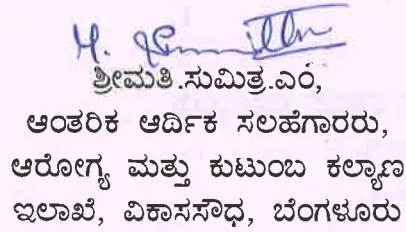 ಶ್ರೀಮತಿ.ಸುಮಿತ್ರ.ಎಂ,
ಆಂತರಿಕ ಆರ್ಥಿಕ ಸಲಹೆಗಾರರು,
ಆರೋಗ್ಯ ಮತ್ತು ಕುಟುಂಬ ಕಲ್ಯಾಣ
ಇಲಾಖೆ, ವಿಕಾಸಸೌಧ, ಬೆಂಗಳೂರು